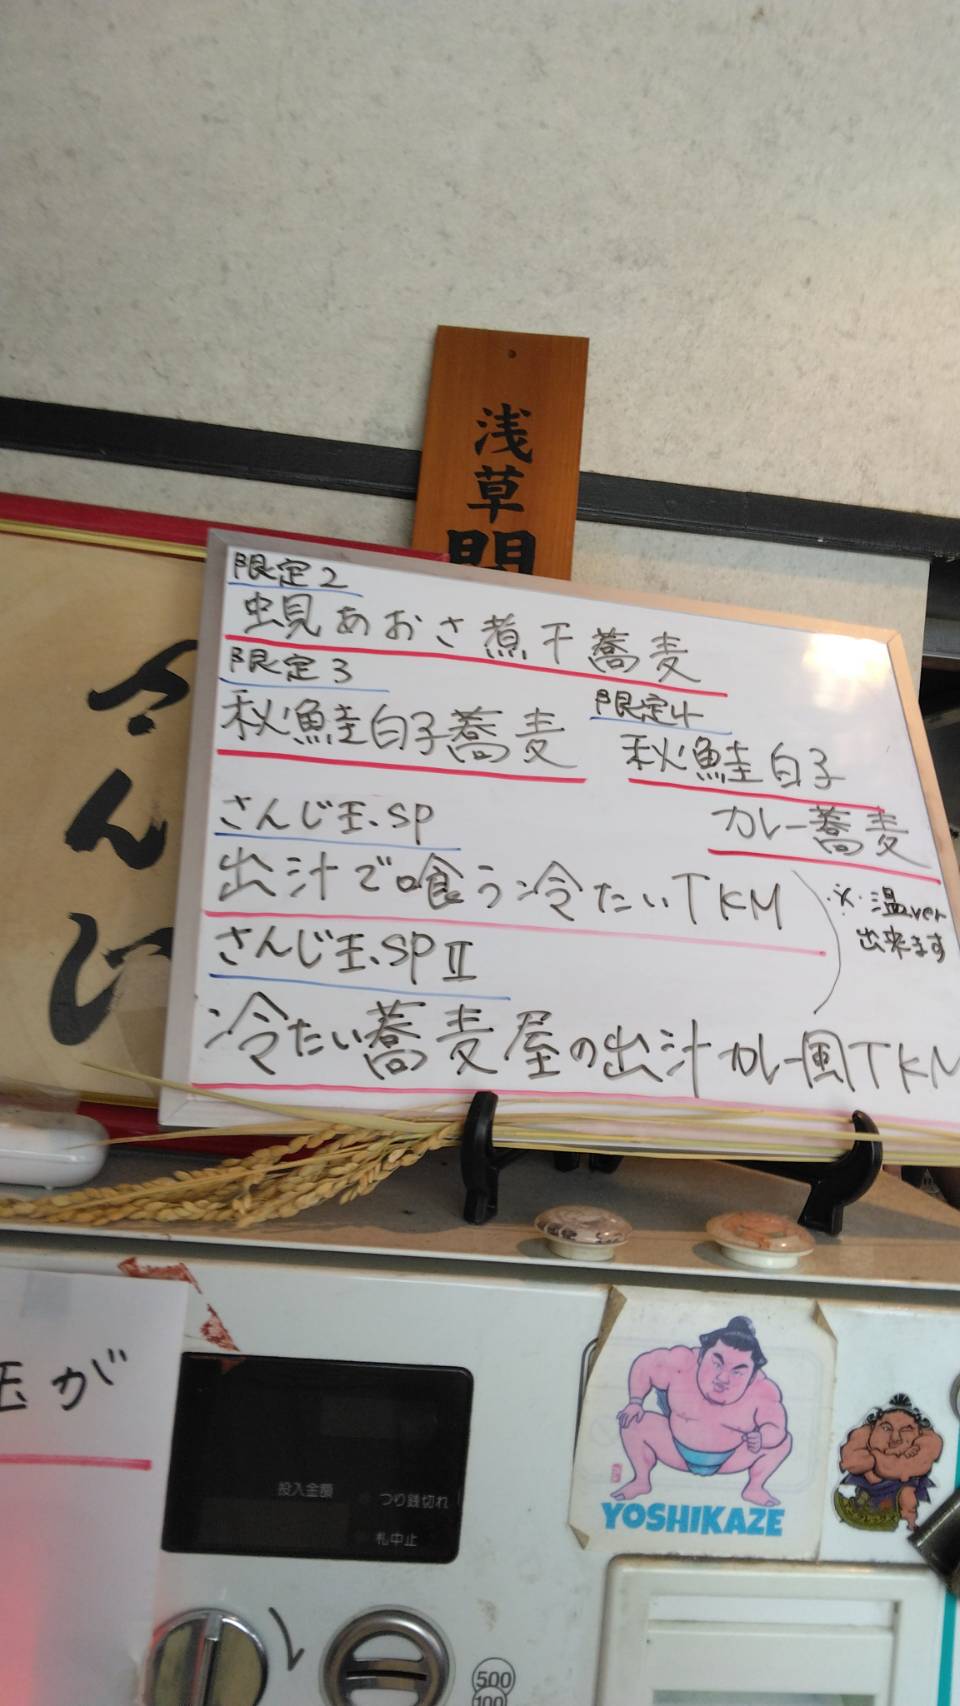 浅草
限定2
蜆あおさ煮干蕎麦
限定3
秋鮭白子蕎麦
限定4
秋鮭白子
カレー蕎麦
さんじ玉、SP
出汁で喰う冷たいTKM
さんじ玉、SPⅡ
冷たい蕎麦屋の出汁カレー風TKM
※温ver
出来ます
さんじ
玉が
投入金額
つり銭切れ
札中止
YOSHIKAZE
500
100